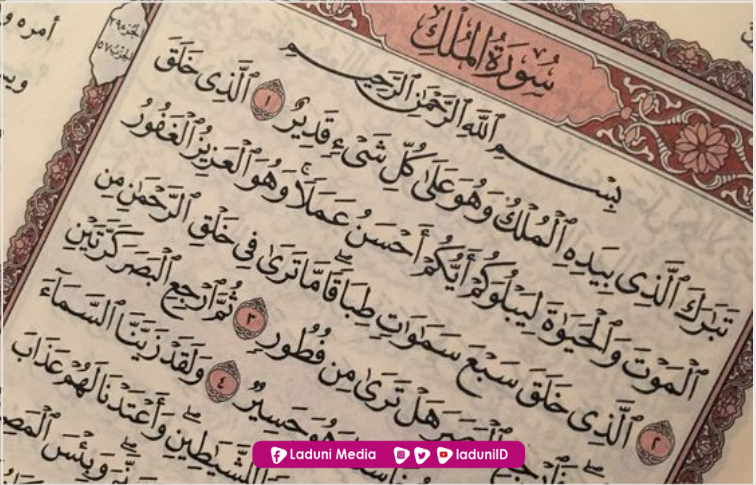 الجزء ٢٩
سُورَةُ المُلۡكِ
بِسۡمِ ٱللَّهِ ٱلرَّحۡمَٰنِ ٱلرَّحِيمِ
تَبَٰرَكَ ٱلَّذِى بِيَدِهِ ٱلۡمُلۡكُ وَهُوَ عَلَىٰ كُلِّ شَىۡءٖ قَدِيرٌ ١ ٱلَّذِى خَلَقَ
ٱلۡمَوۡتَ وَٱلۡحَيَوٰةَ لِيَبۡلُوَكُمۡ أَيُّكُمۡ أَحۡسَنُ عَمَلٗاۚ وَهُوَ ٱلۡعَزِيزُ ٱلۡغَفُورُ
٢ ٱلَّذِى خَلَقَ سَبۡعَ سَمَٰوَٰتٖ طِبَاقٗاۖ مَّا تَرَىٰ فِى خَلۡقِ ٱلرَّحۡمَٰنِ مِن
فَٱرۡجِعِ ٱلۡبَصَرَ هَلۡ تَرَىٰ مِن فُطُورٖ ٣ ثُمَّ ٱرۡجِعِ ٱلۡبَصَرَ كَرَّتَيۡنِ
وَهُوَ حَسِيرٞ ٤ وَلَقَدۡ زَيَّنَّا ٱلسَّمَآءَ
لِّلشَّيَٰطِينِۖ وَأَعۡتَدۡنَا لَهُمۡ عَذَابَ
وَبِئۡسَ ٱلۡمَصِ
أمره و
Laduni Media laduniID